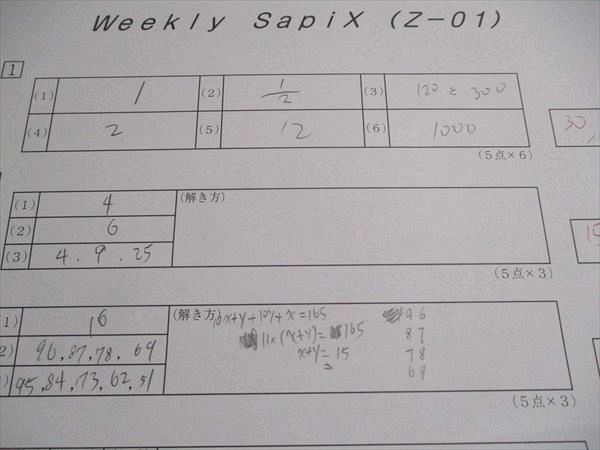 Weekly SapiX (Z-01)
1
(1) 1 (2) 1/2 (3) 120と300
(4) 2 (5) 12 (6) 1000
30
(5点×6)
(1) 4 (解き方)
(2) 6
(3) 4.9.25
15
(5点×3)
1) 16 (解き方) 10x+y+10y+x=165 96
2) 96,87,78,69 11×(x+y)=165 87
95,84,73,62,51 x+y=15 78
69
(5点×3)